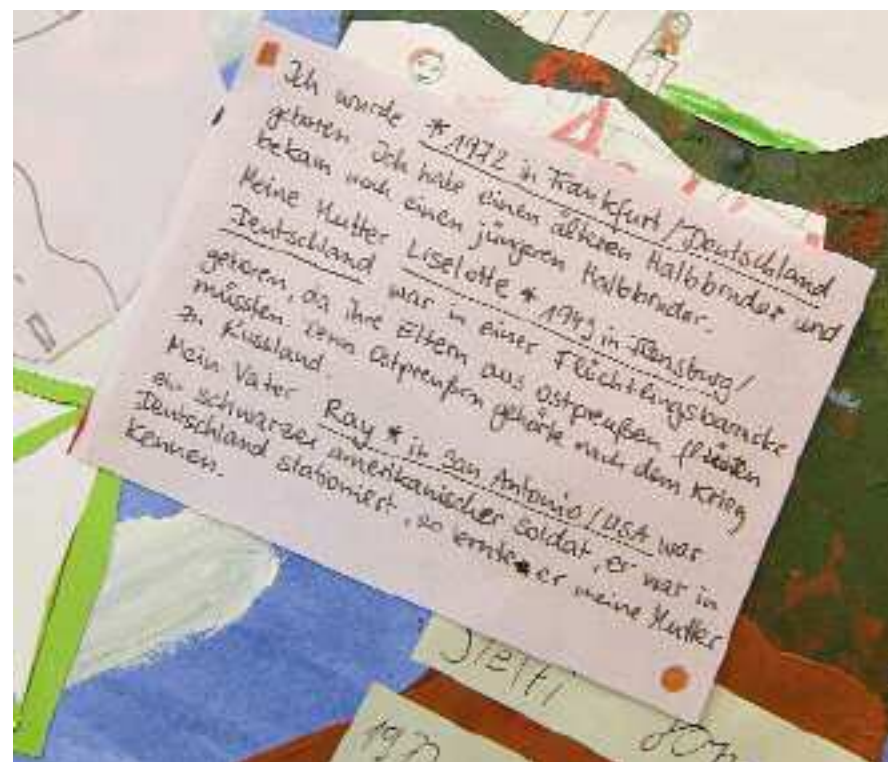 Ich wurde * 1972 in Frankfurt / Deutschland
geboren. Ich habe einen älteren Halbbruder und
bekam noch einen jüngeren Halbbruder.
Meine Mutter Liselotte * 1949 in Flensburg /
Deutschland war in einer Flüchtlingsbaracke
geboren, da ihre Eltern aus Ostpreußen
müssten. Denn Ostpreußen gehörte nach dem Krieg
zu Russland.
Mein Vater Ray * in San Antonio / USA war
ein schwarzer amerikanischer Soldat, er war in
Deutschland stationiert, so lernte er meine Mutter
kennen.
Steffi